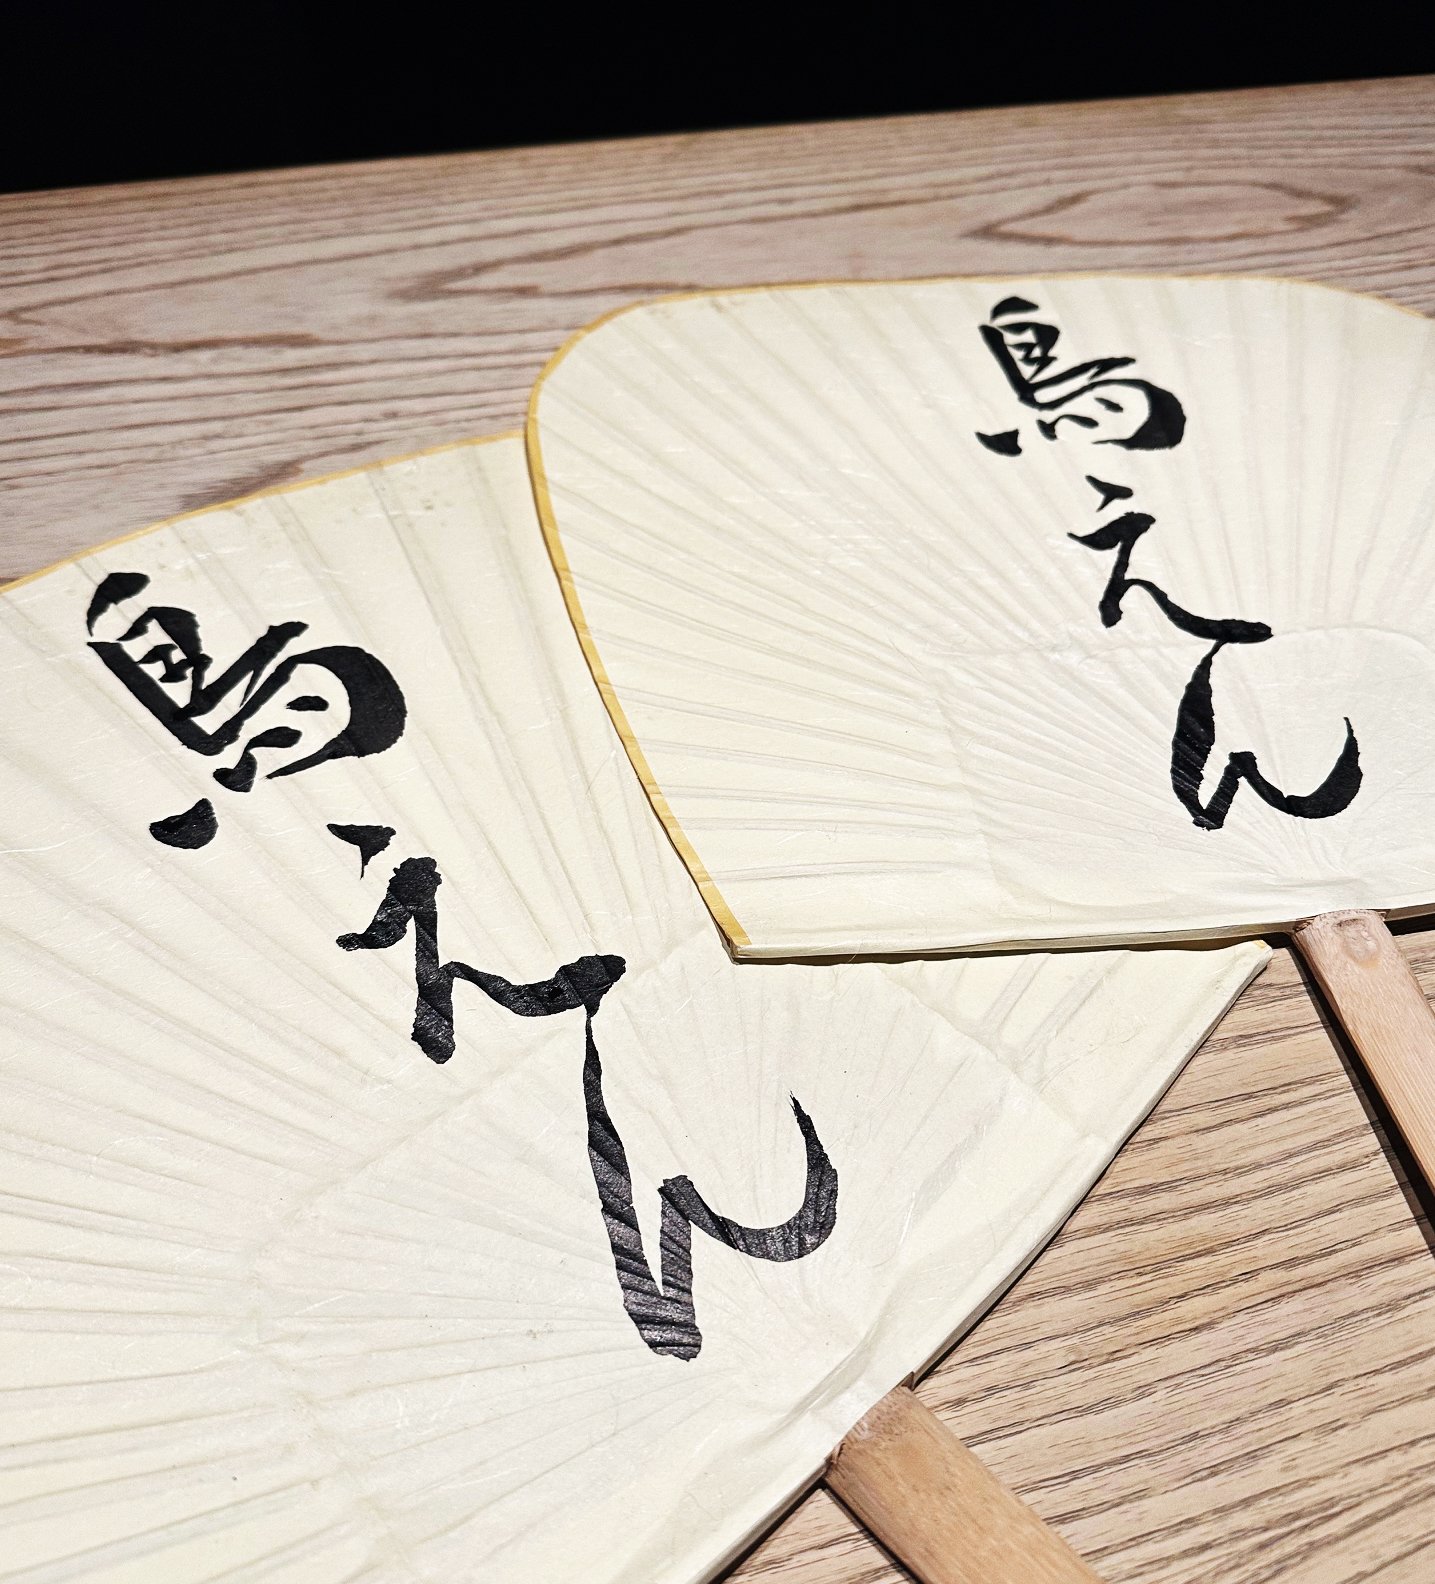 鳥えん
鳥えん